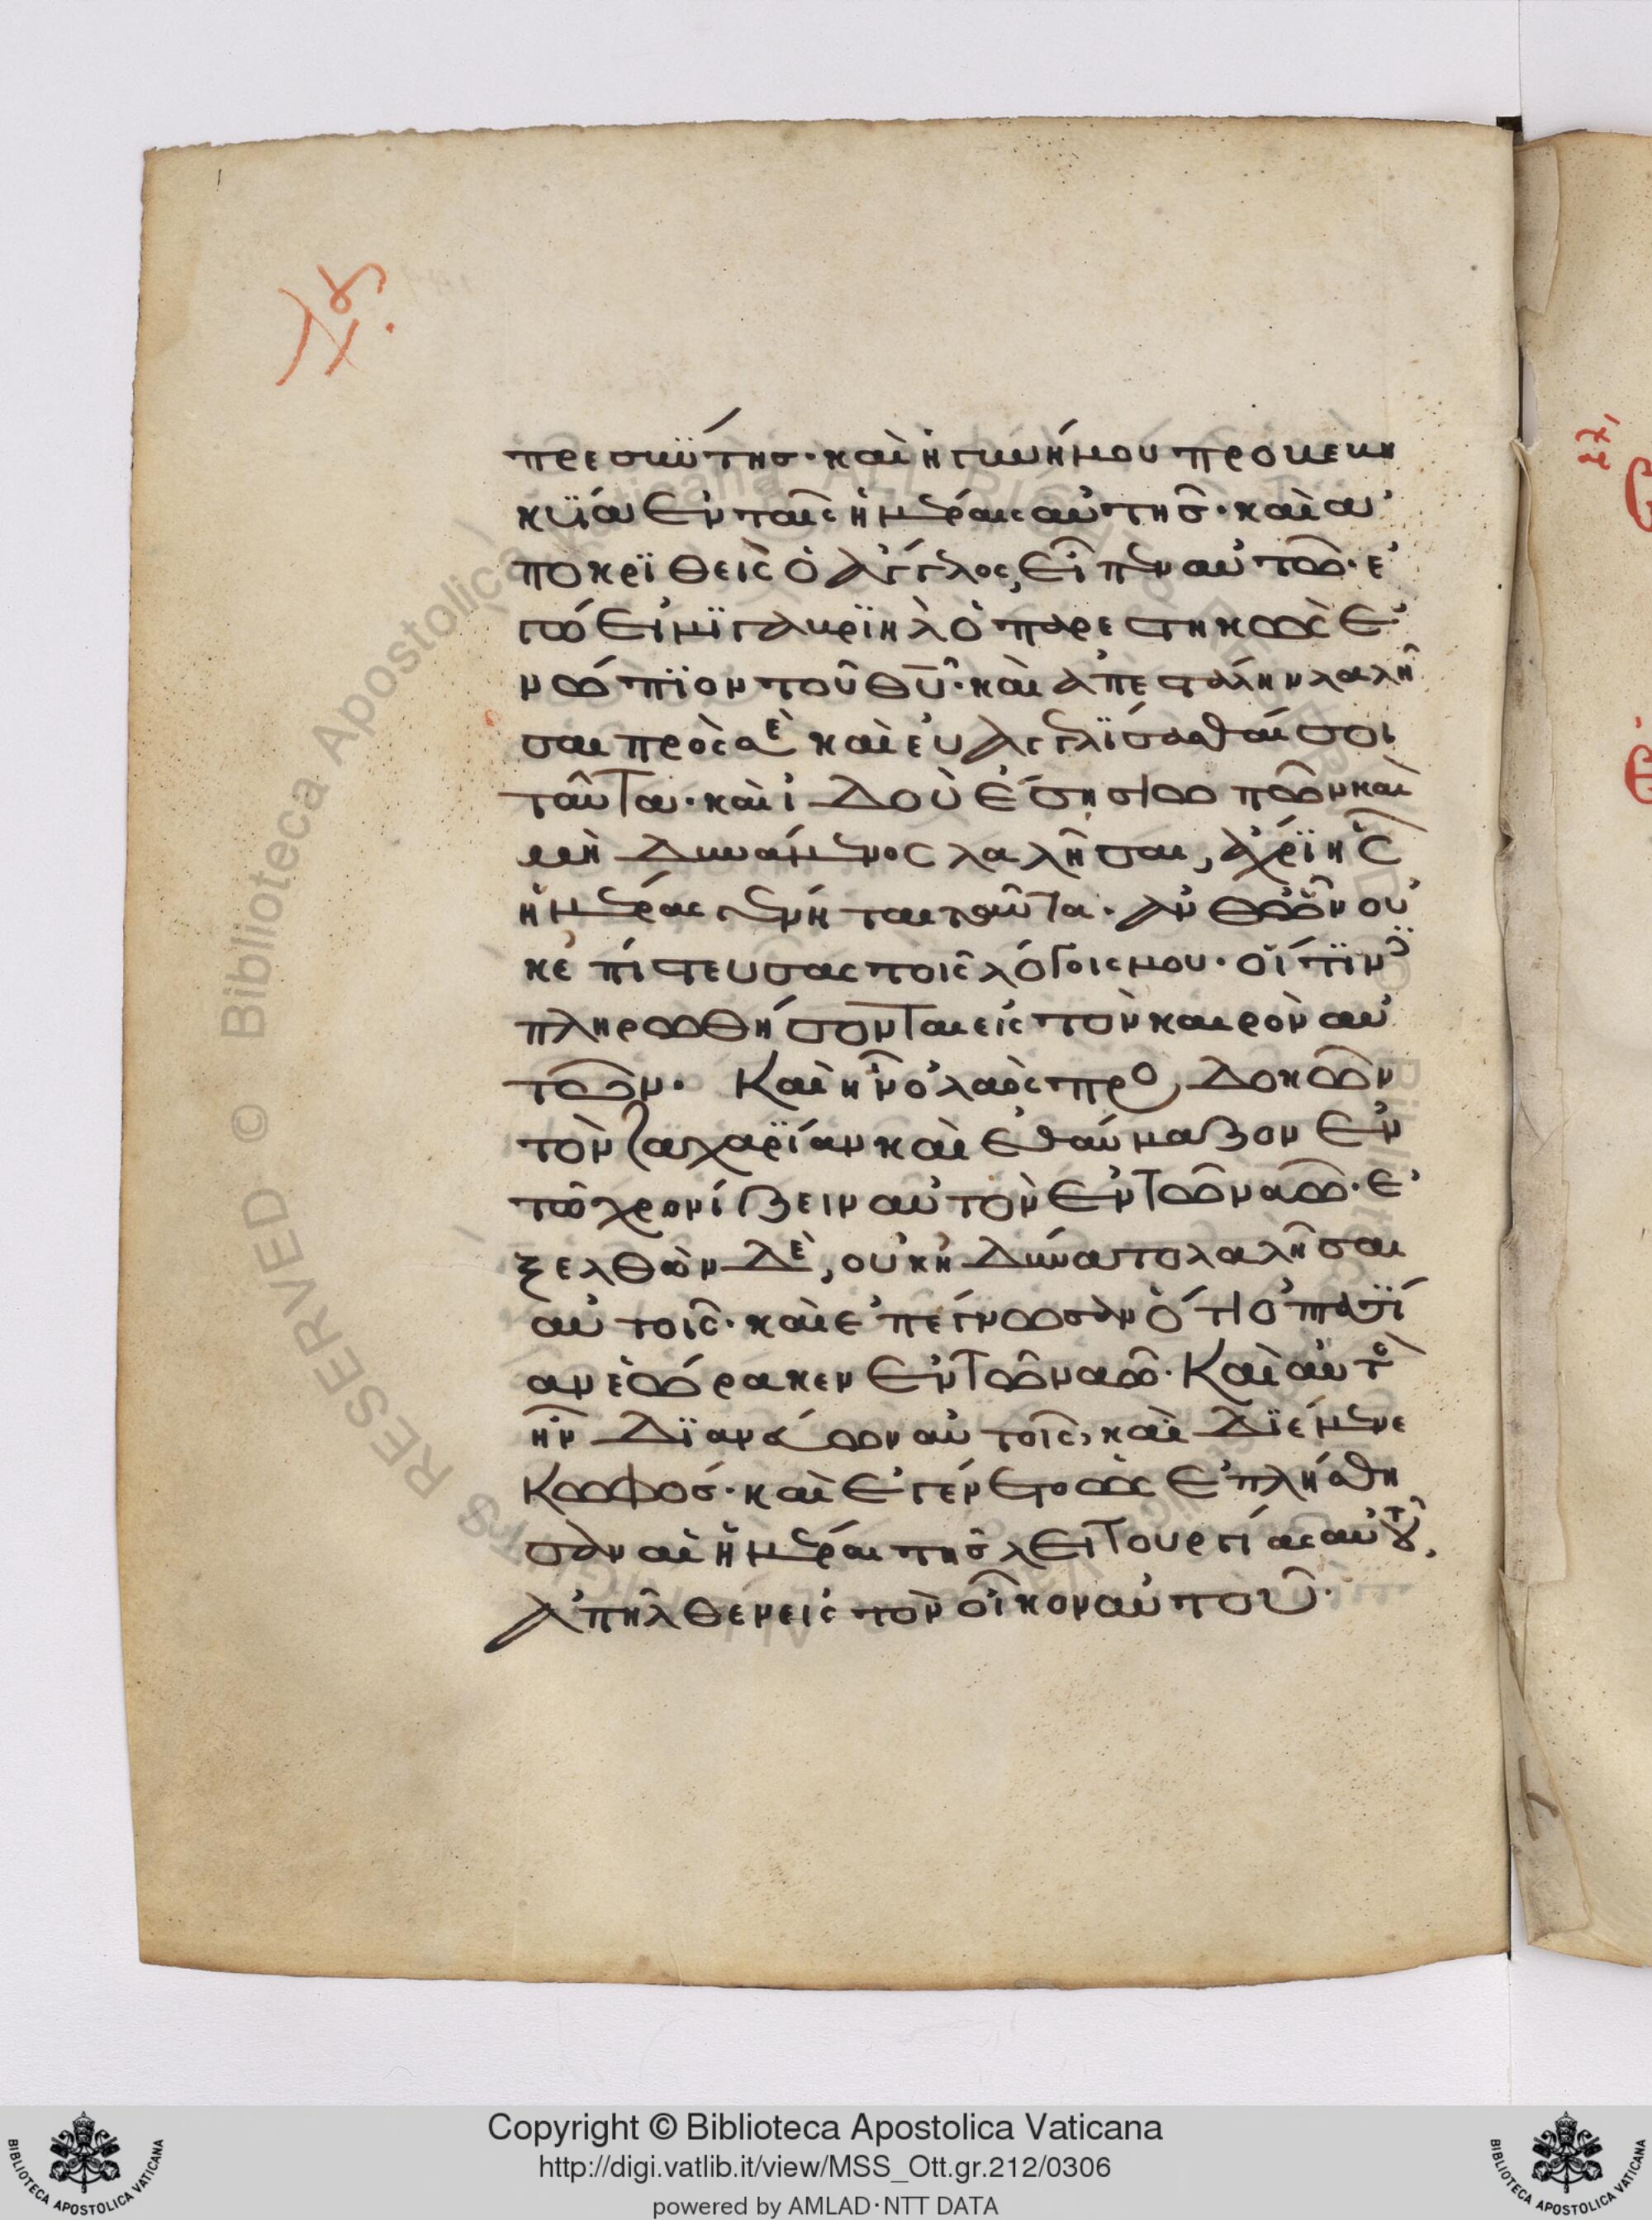 πρεσβύτης· καὶ ἡ γυνή μου προβεβη
κϋῖα ἐν ταῖς ἡμέραις αὐτῆς· καὶ ἀ
ποκρϊθεὶς ὁ ἄγγελος, εἶπεν αὐτῶ· ἐ
γώ εἰμϊ γαβρϊὴλ ὁ παρεστηκὼς ἐ
νώπϊον τοῦ θῡ· καὶ ἀπεστάλην λαλῆ
σαι πρὸς σὲ καὶ εὐαγγελΐσασθαί σοι
ταῦτα· καὶ ἰδοὺ ἔση σιωπῶν καὶ
μὴ δυνάμενος λαλῆσαι, ἄχρϊ ἧς
ἡμέρας γένηται ταῦτα· ἀνθ' ὧν οὐ
κ ἐπίστευσας τοῖς λόγοις μου· οἵτϊν
πληρωθήσονται εἰς τὸν καιρὸν αὐ
τῶν· Καὶ ἦν ὁ λαὸς προσδοκῶν
τὸν ζαχαρΐαν καὶ ἐθαύμαζον ἐν
τῶ χρονίζειν αὐτὸν ἐν τῶ ναῶ· ἐ
ξελθὼν δὲ, οὐκ ἠδύνατο λαλῆσαι
αὐτοῖς· καὶ ἐπέγνωσαν ὅτι ὀπτασΐ
αν ἑώρακεν ἐν τῶ ναῶ· Καὶ αὐτὸ
ἦν δϊανεύων αὐτοῖς, καὶ δϊέμενε
κωφός· καὶ ἐγένετο ὡς ἐπλήσθη
σαν αἱ ἡμέραι τῆς λειτουργίας αὐτοῦ,
ἀπῆλθεν εἰς τὸν οἶκον αὐτοῦ·
Copyright © Biblioteca Apostolica Vaticana
http://digi.vatlib.it/view/MSS_Ott.gr.212/0306
powered by AMLAD·NTT DATA